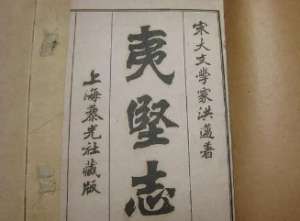 宋大文学家洪邁著
夷堅志
上海蔡光社藏版